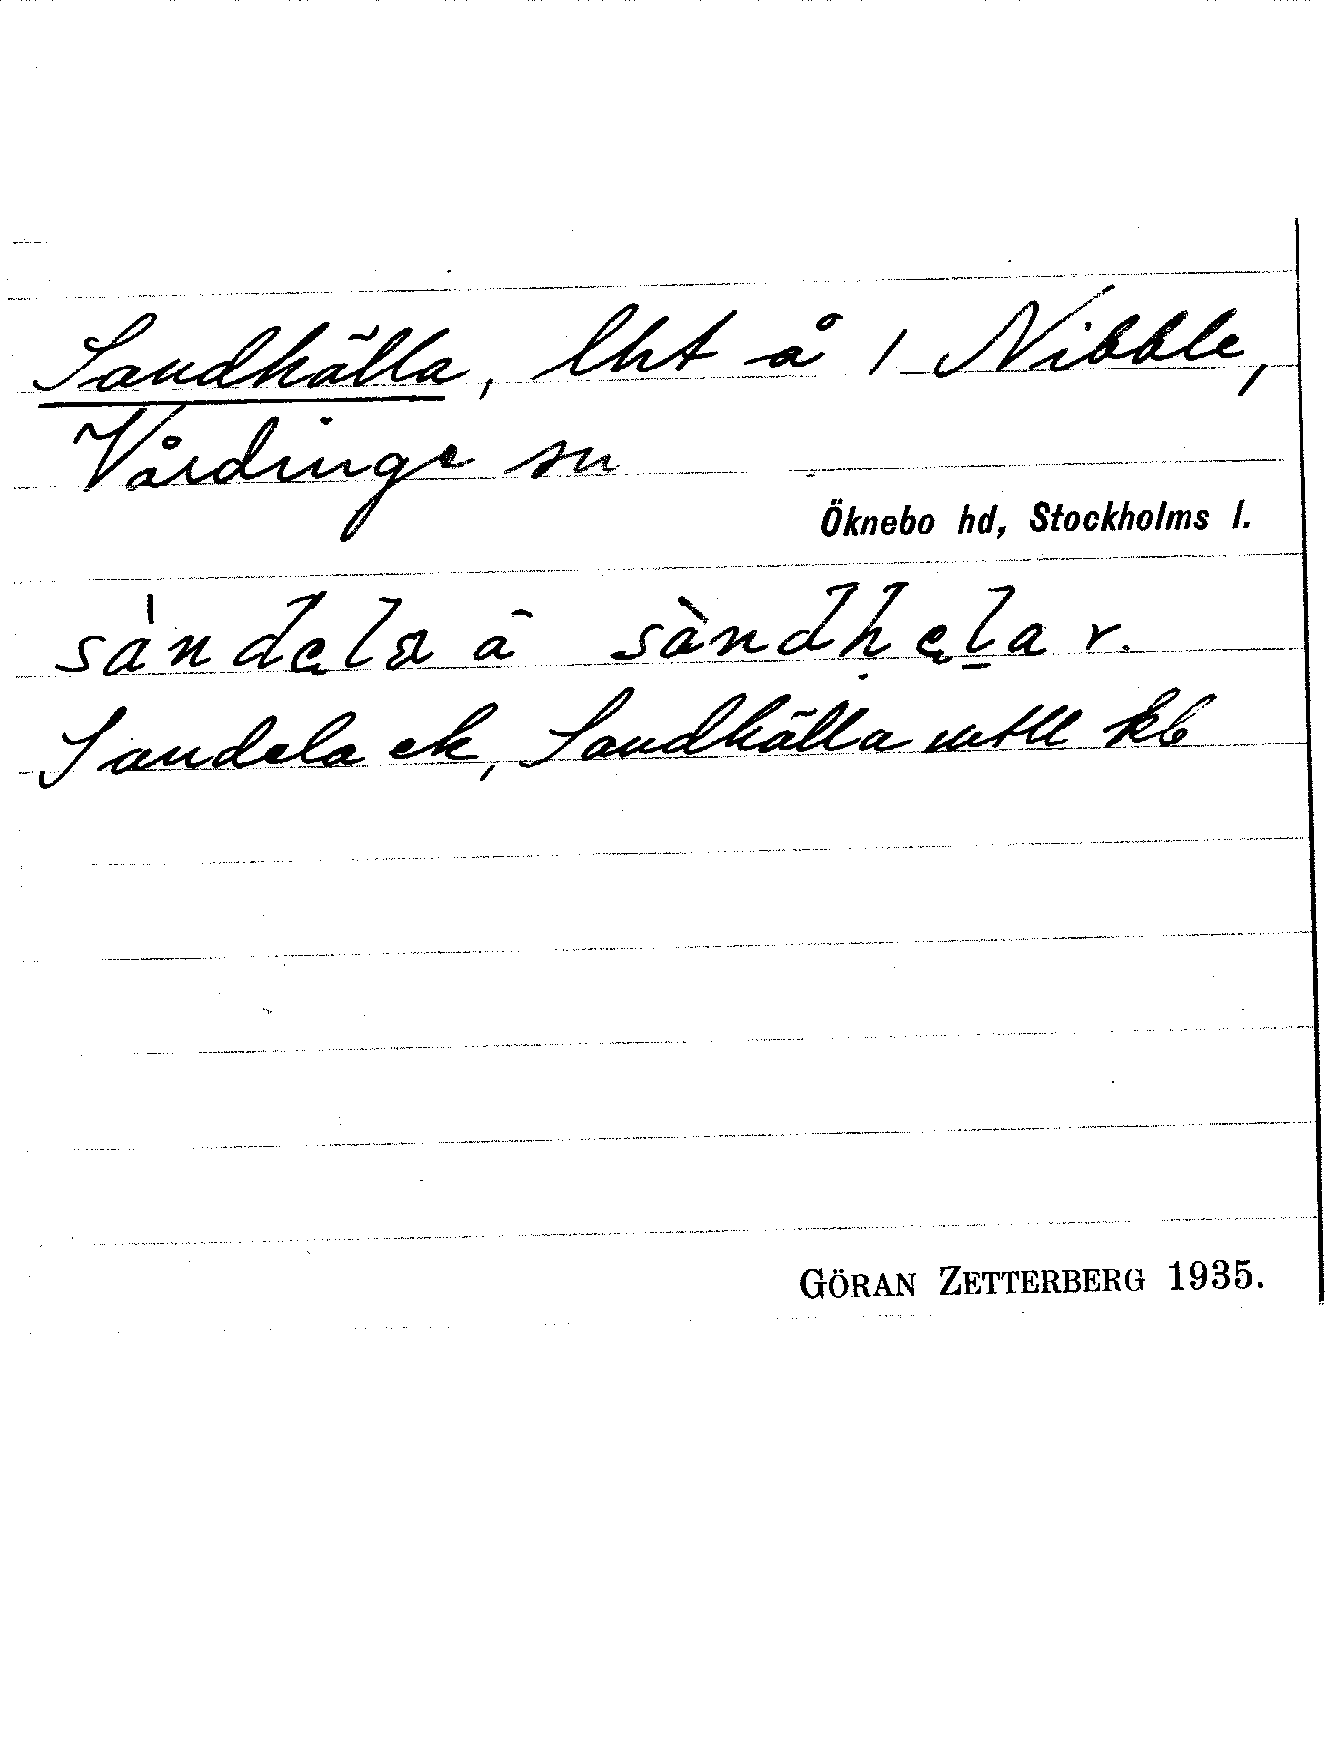 Sandhälla, lht å 1 Nibble,
Vårdinge sn
Öknebo hd, Stockholms l.
sàndęla ā sàndhęl̠a r.
Sandela ek, Sandhälla mtll kb
GÖRAN ZETTERBERG 1935.